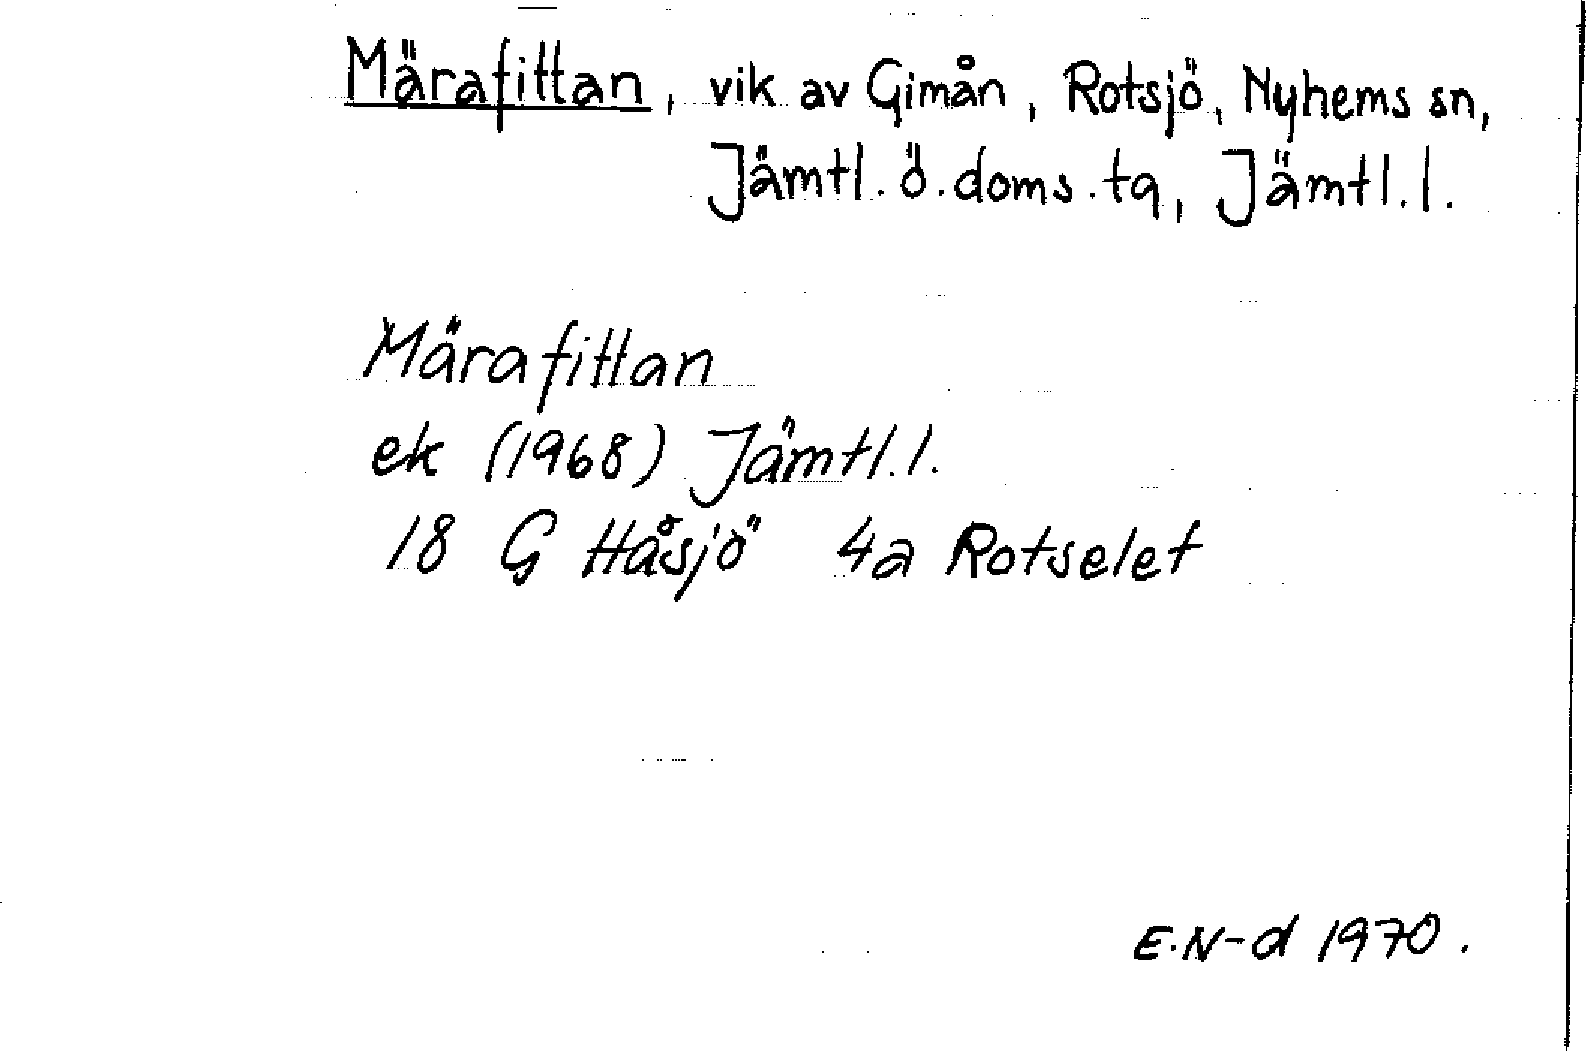 Märafittan, vik av Gimån, Rotsjö, Nyhems sn,
Jämtl. ö. doms. tg, Jämtl. l.
Märafittan
ek (1968) Jämtl. l.
18 G Håsjö 4a Rotselet
E.N-d 1970.